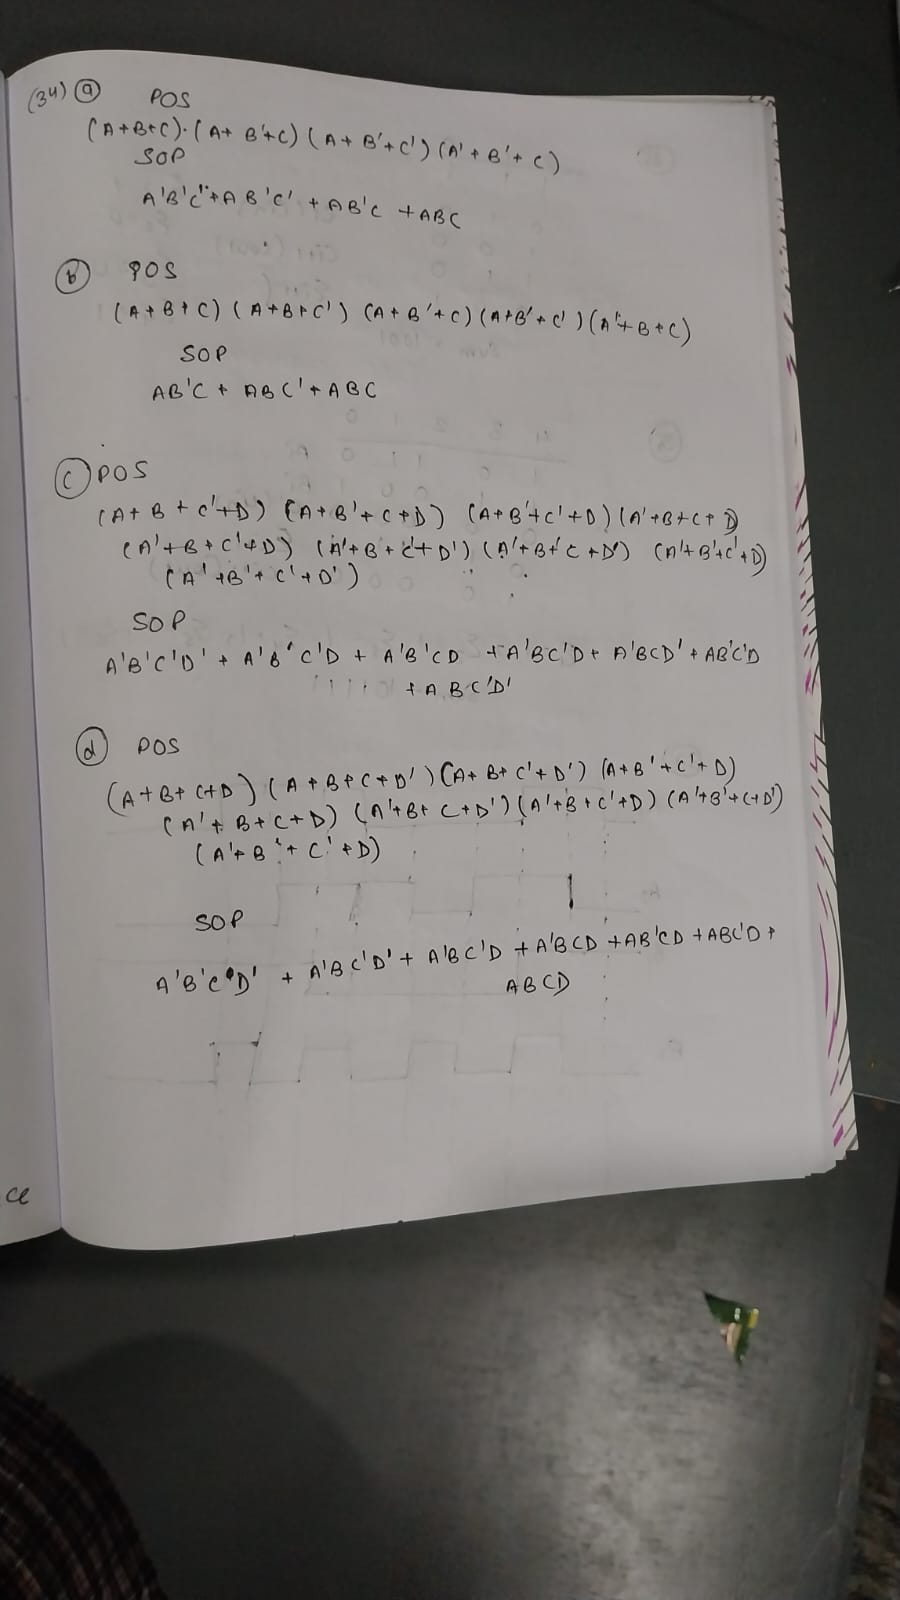 (34) (a) POS
(A+B+C)·(A+B'+C)(A+B'+C')(A'+B'+C)
SOP
A'B'C'+AB'C'+AB'C+ABC
(b) POS
(A+B+C)(A+B+C')(A+B'+C)(A+B'+C')(A'+B+C)
SOP
AB'C+ABC'+ABC
(c) POS
(A+B+C'+D)(A+B'+C+D)(A+B'+C'+D)(A'+B+C+D)
(A'+B+C'+D)(A'+B+C'+D')(A'+B+C+D')(A'+B'+C'+D)
(A'+B'+C'+D')
SOP
A'B'C'D'+A'B'C'D+A'B'CD+A'BC'D+A'BCD'+AB'C'D
+ABC'D'
(d) POS
(A+B+C+D)(A+B+C+D')(A+B+C'+D')(A+B'+C'+D)
(A'+B+C+D)(A'+B+C+D')(A'+B+C'+D)(A'+B'+C+D')
(A'+B'+C'+D)
SOP
A'B'C D'+A'BC'D'+A'BC'D+A'BCD+AB'CD+ABC'D+
ABCD
ce